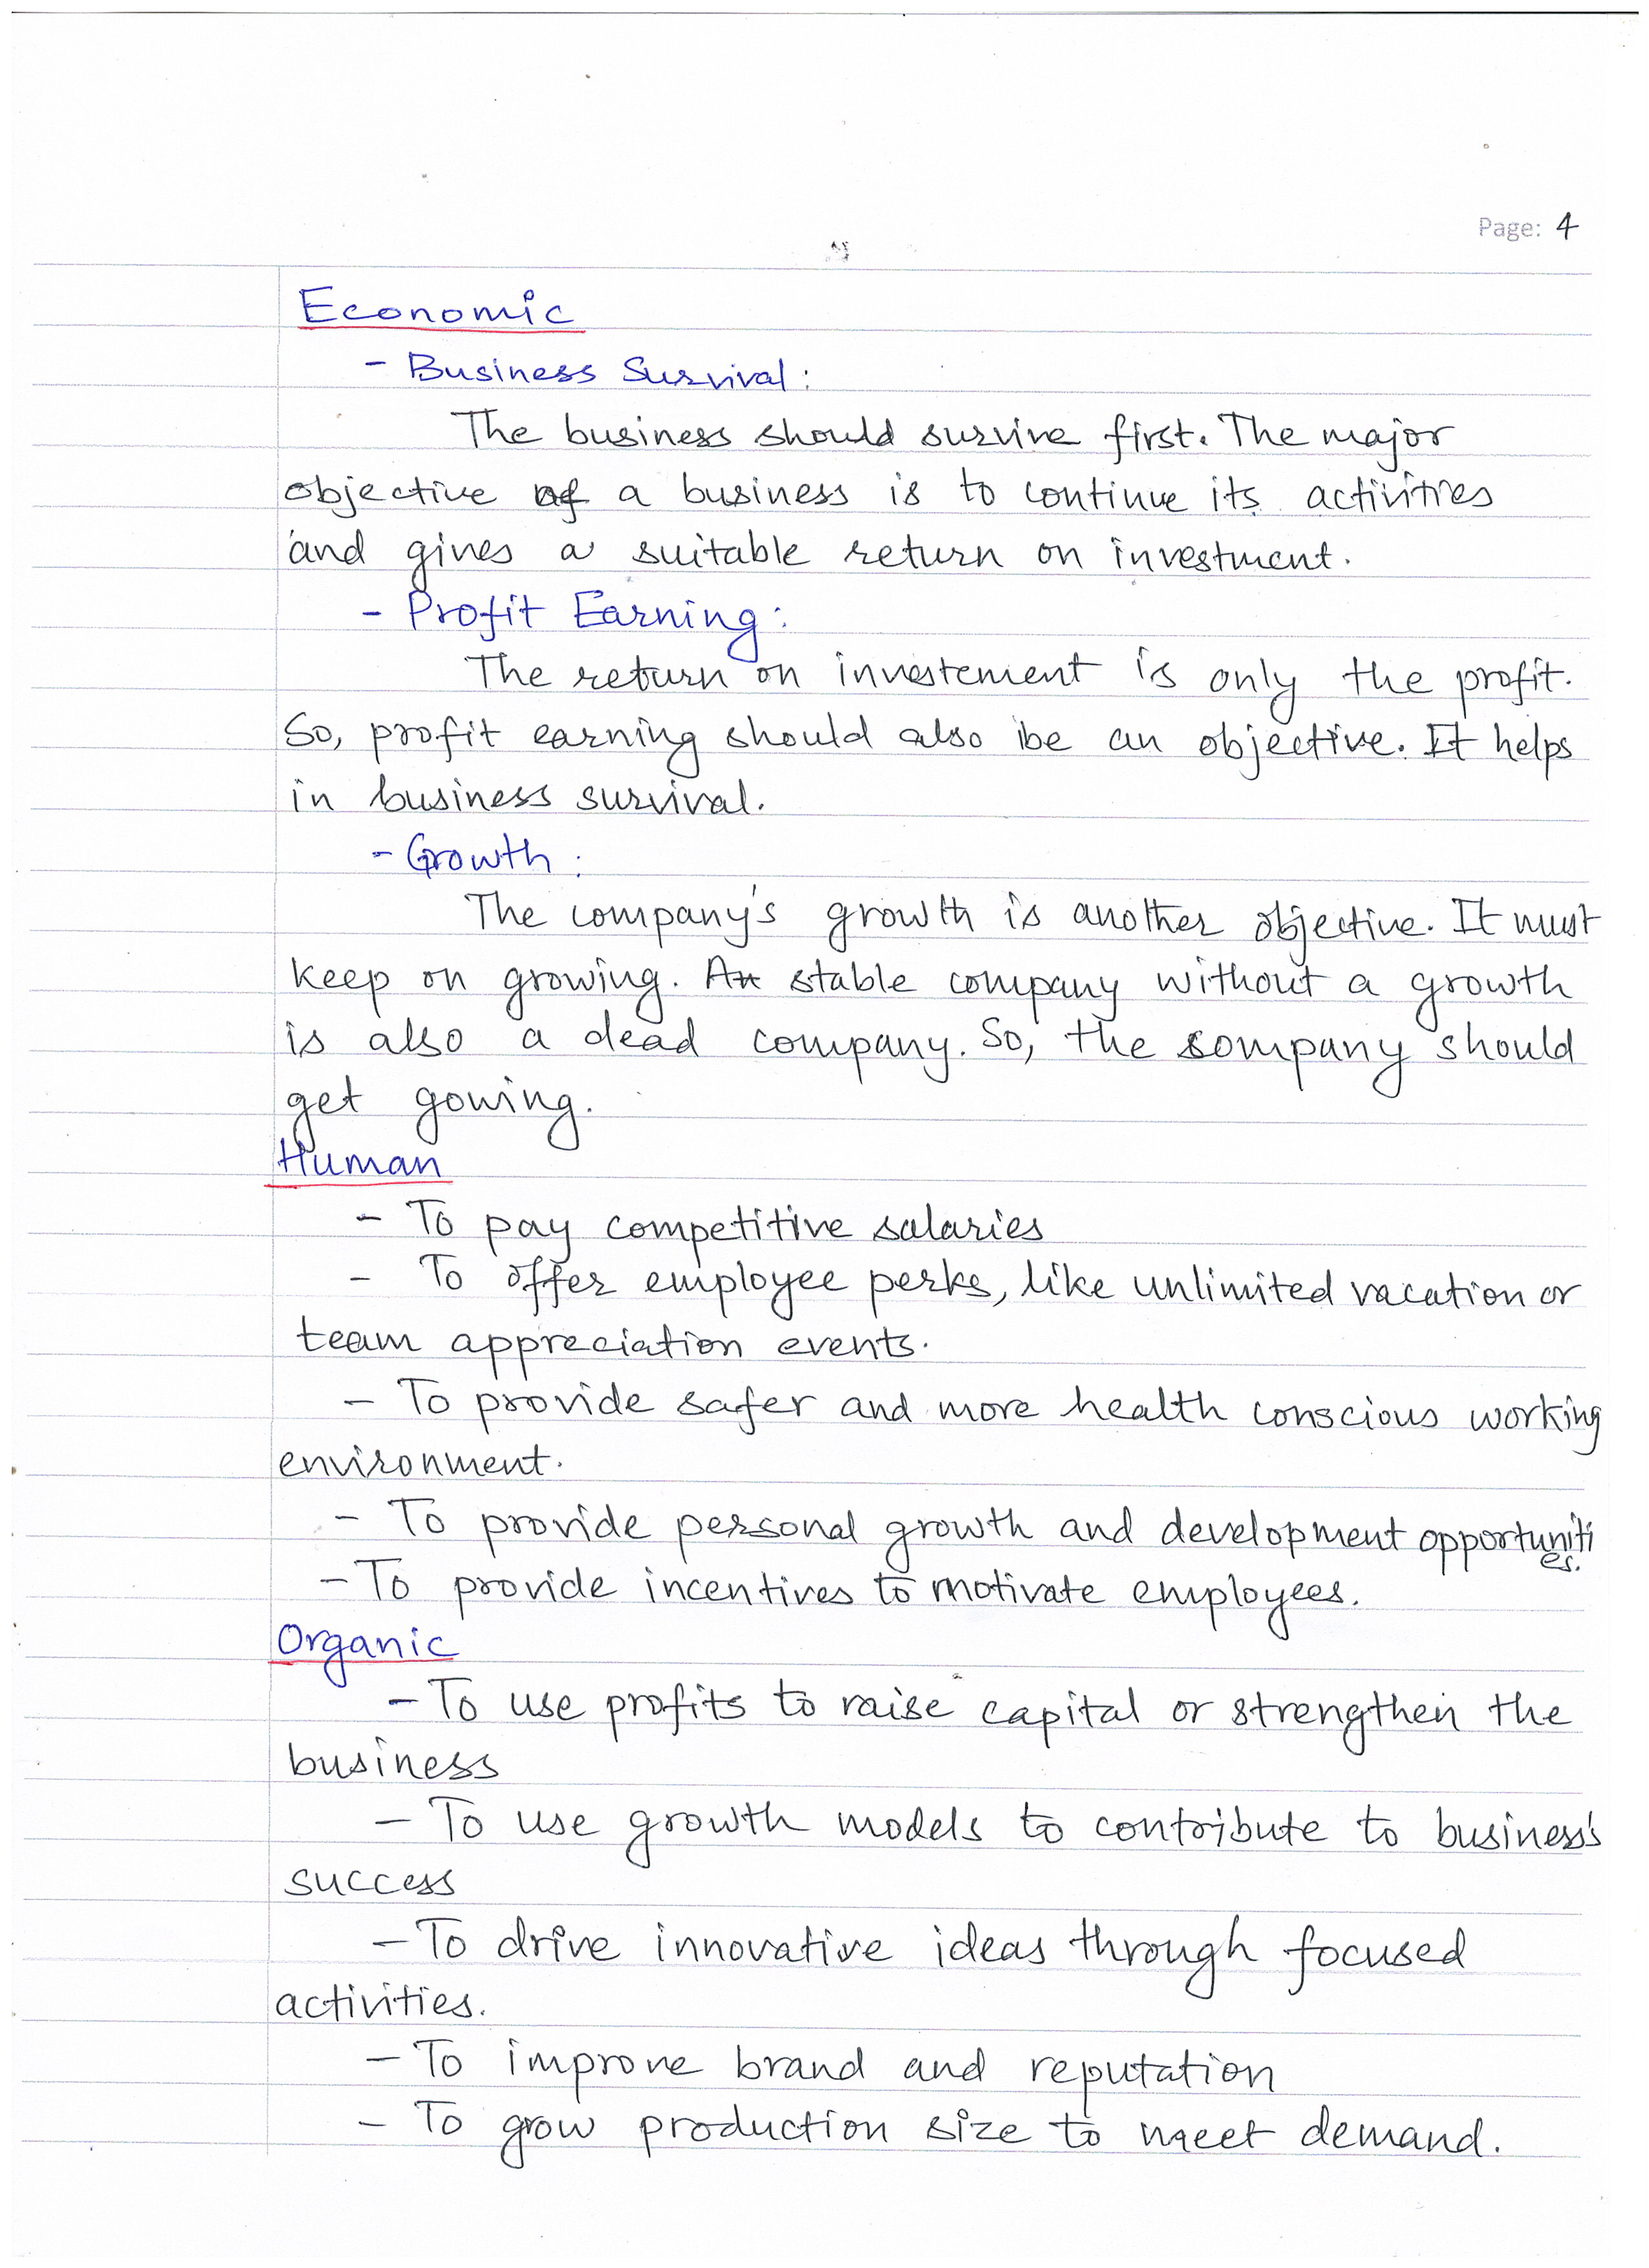 Page: 4
Economic
- Business Survival:
The business should survive first. The major
objective of a business is to continue its activities
and gives a suitable return on investment.
- Profit Earning:
The return on investement is only the profit.
So, profit earning should also be an objective. It helps
in business survival.
- Growth:
The company's growth is another objective. It must
keep on growing. A stable company without a growth
is also a dead company. So, the company should
get gowing.
Human
- To pay competitive salaries
- To offer employee perks, like unlimited vacation or
team appreciation events.
- To provide safer and more health conscious working
environment.
- To provide personal growth and development opportuniti
es.
- To provide incentives to motivate employees.
Organic
- To use profits to raise capital or strengthen the
business
- To use growth models to contribute to business's
success
- To drive innovative ideas through focused
activities.
- To improve brand and reputation
- To grow production size to meet demand.